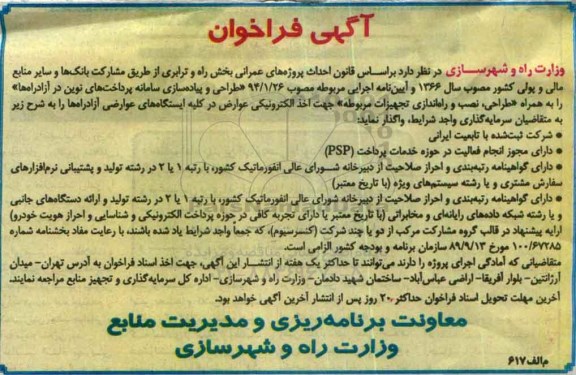 آگهی فراخوان
وزارت راه و شهرسازی در نظر دارد براساس قانون احداث پروژه‌های عمرانی بخش راه و ترابری از طریق مشارکت بانک‌ها و سایر منابع
مالی و پولی کشور مصوب سال ۱۳۶۶ و آیین‌نامه اجرایی مربوطه مصوب ۹۴/۱/۲۶ «طراحی و پیاده‌سازی سامانه پرداخت‌های نوین در آزادراه‌ها»
را به همراه «طراحی، نصب و راه‌اندازی تجهیزات مربوطه» جهت اخذ الکترونیکی عوارض در کلیه ایستگاه‌های عوارضی آزادراه‌ها را به شرح زیر
به متقاضیان سرمایه‌گذاری واجد شرایط، واگذار نماید:
● شرکت ثبت‌شده با تابعیت ایرانی
● دارای مجوز انجام فعالیت در حوزه خدمات پرداخت (PSP)
● دارای گواهینامه رتبه‌بندی و احراز صلاحیت از دبیرخانه شورای عالی انفورماتیک کشور، با رتبه ۱ یا ۲ در رشته تولید و پشتیبانی نرم‌افزارهای
سفارش مشتری و یا رشته سیستم‌های ویژه (با تاریخ معتبر)
● دارای گواهینامه رتبه‌بندی و احراز صلاحیت از دبیرخانه شورای عالی انفورماتیک کشور، با رتبه ۱ یا ۲ در رشته تولید و ارائه دستگاه‌های جانبی
و یا رشته شبکه داده‌های رایانه‌ای و مخابراتی (با تاریخ معتبر یا دارای تجربه کافی در حوزه پرداخت الکترونیکی و شناسایی و احراز هویت خودرو)
ارایه پیشنهاد در قالب گروه مشارکت مرکب از دو یا چند شرکت (کنسرسیوم)، که جمعاً واجد شرایط یاد شده باشند، با رعایت مفاد بخشنامه شماره
۱۰۰/۶۷۲۸۵ مورخ ۸۹/۹/۱۳ سازمان برنامه و بودجه کشور الزامی است.
متقاضیانی که آمادگی اجرای پروژه را دارند می‌توانند تا حداکثر یک هفته از انتشار این آگهی، جهت اخذ اسناد فراخوان به آدرس تهران- میدان
آرژانتین- بلوار آفریقا- اراضی عباس‌آباد- ساختمان شهید دادمان- وزارت راه و شهرسازی- اداره کل سرمایه‌گذاری و تجهیز منابع مراجعه نمایند.
آخرین مهلت تحویل اسناد فراخوان حداکثر ۲۰ روز پس از انتشار آخرین آگهی خواهد بود.
معاونت برنامه‌ریزی و مدیریت منابع
وزارت راه و شهرسازی
م‌الف۶۱۷